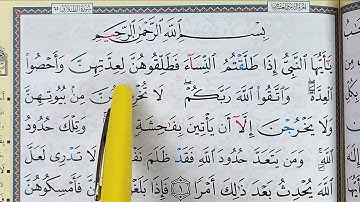 بِسْمِ اللَّهِ الرَّحْمَٰنِ الرَّحِيمِ
يَٰٓأَيُّهَا النَّبِىُّ إِذَا طَلَّقْتُمُ النِّسَآءَ فَطَلِّقُوهُنَّ لِعِدَّتِهِنَّ وَأَحْصُوا
الْعِدَّةَ ۖ وَاتَّقُوا اللَّهَ رَبَّكُمْ ۖ لَا مِنۢ بُيُوتِهِنَّ
وَلَا يَخْرُجْنَ إِلَّآ أَن يَأْتِينَ بِفَٰحِشَةٍ وَتِلْكَ حُدُودُ
اللَّهِ ۚ وَمَن يَتَعَدَّ حُدُودَ اللَّهِ فَقَدْ ظَلَمَ لَا تَدْرِى لَعَلَّ
اللَّهَ يُحْدِثُ بَعْدَ ذَٰلِكَ أَمْرًا ١ فَإِذَا فَأَمْسِكُوهُنَّ